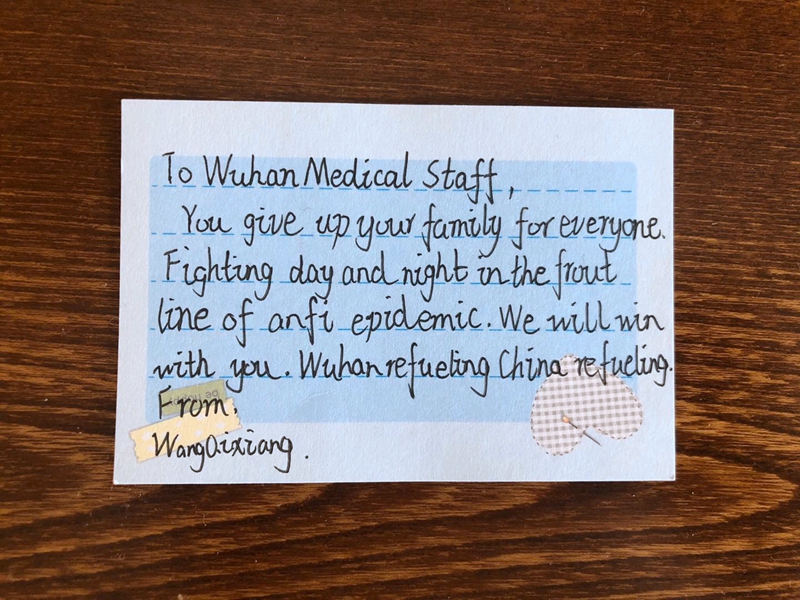 To Wuhan Medical Staff,
You give up your family for everyone.
Fighting day and night in the frout
line of anfi epidemic. We will win
with you. Wuhan refueling China refueling.
From.
WangQixiang.